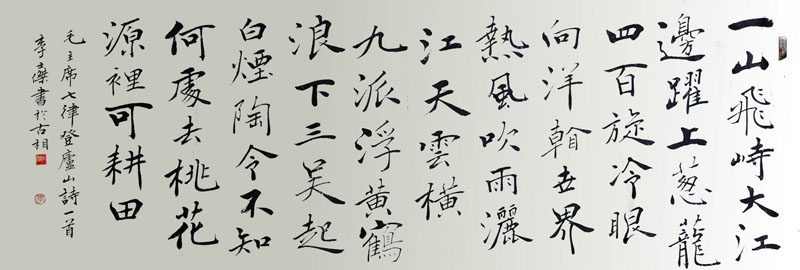 一山飛峙大江
邊躍上葱蘢
四百旋冷眼
向洋翰世界
熱風吹雨灑
江天雲橫
九派浮黃鶴
浪下三吴起
白煙陶令不知
何處去桃花
源裡可耕田
毛主席七律登廬山詩一首
李傑書於古相